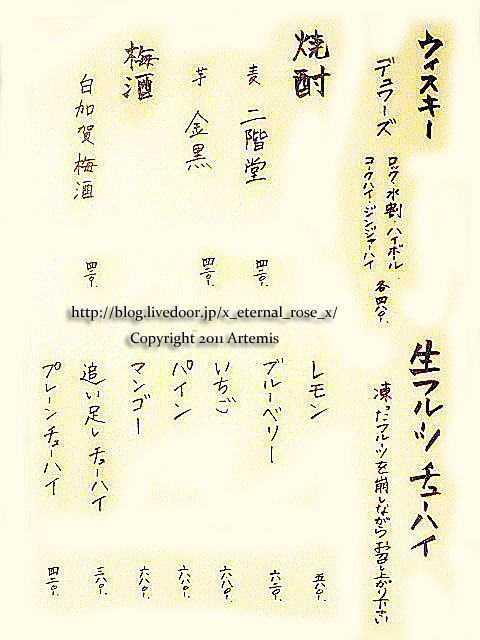 ウィスキー
デュワーズ
ロック・水割・ハイボール
コークハイ・ジンジャーハイ
各四八〇.
焼酎
麦 二階堂 四二〇.
芋 金黒 四二〇.
梅酒
白加賀梅酒 四二〇.
http://blog.livedoor.jp/x_eternal_rose_x/
Copyright 2011 Artemis
生フルーツチューハイ
凍ったフルーツを崩しながらお召し上がり下さい
レモン 五八〇.
ブルーベリー 六三〇.
いちご 六八〇.
パイン 六八〇.
マンゴー 六八〇.
追い足しチューハイ 三八〇.
プレーンチューハイ 四二〇.